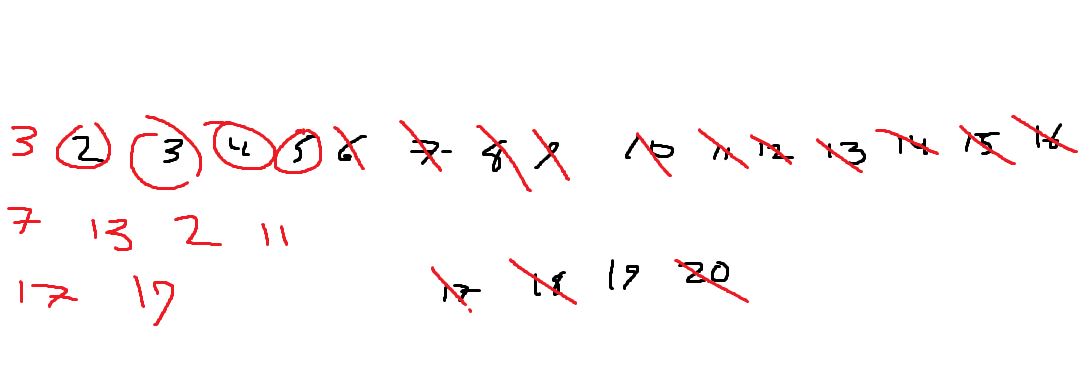 3 2 3 4 5 6 7 8 9 10 11 12 13 14 15 16
7 13 2 11
17 19 17 18 19 20